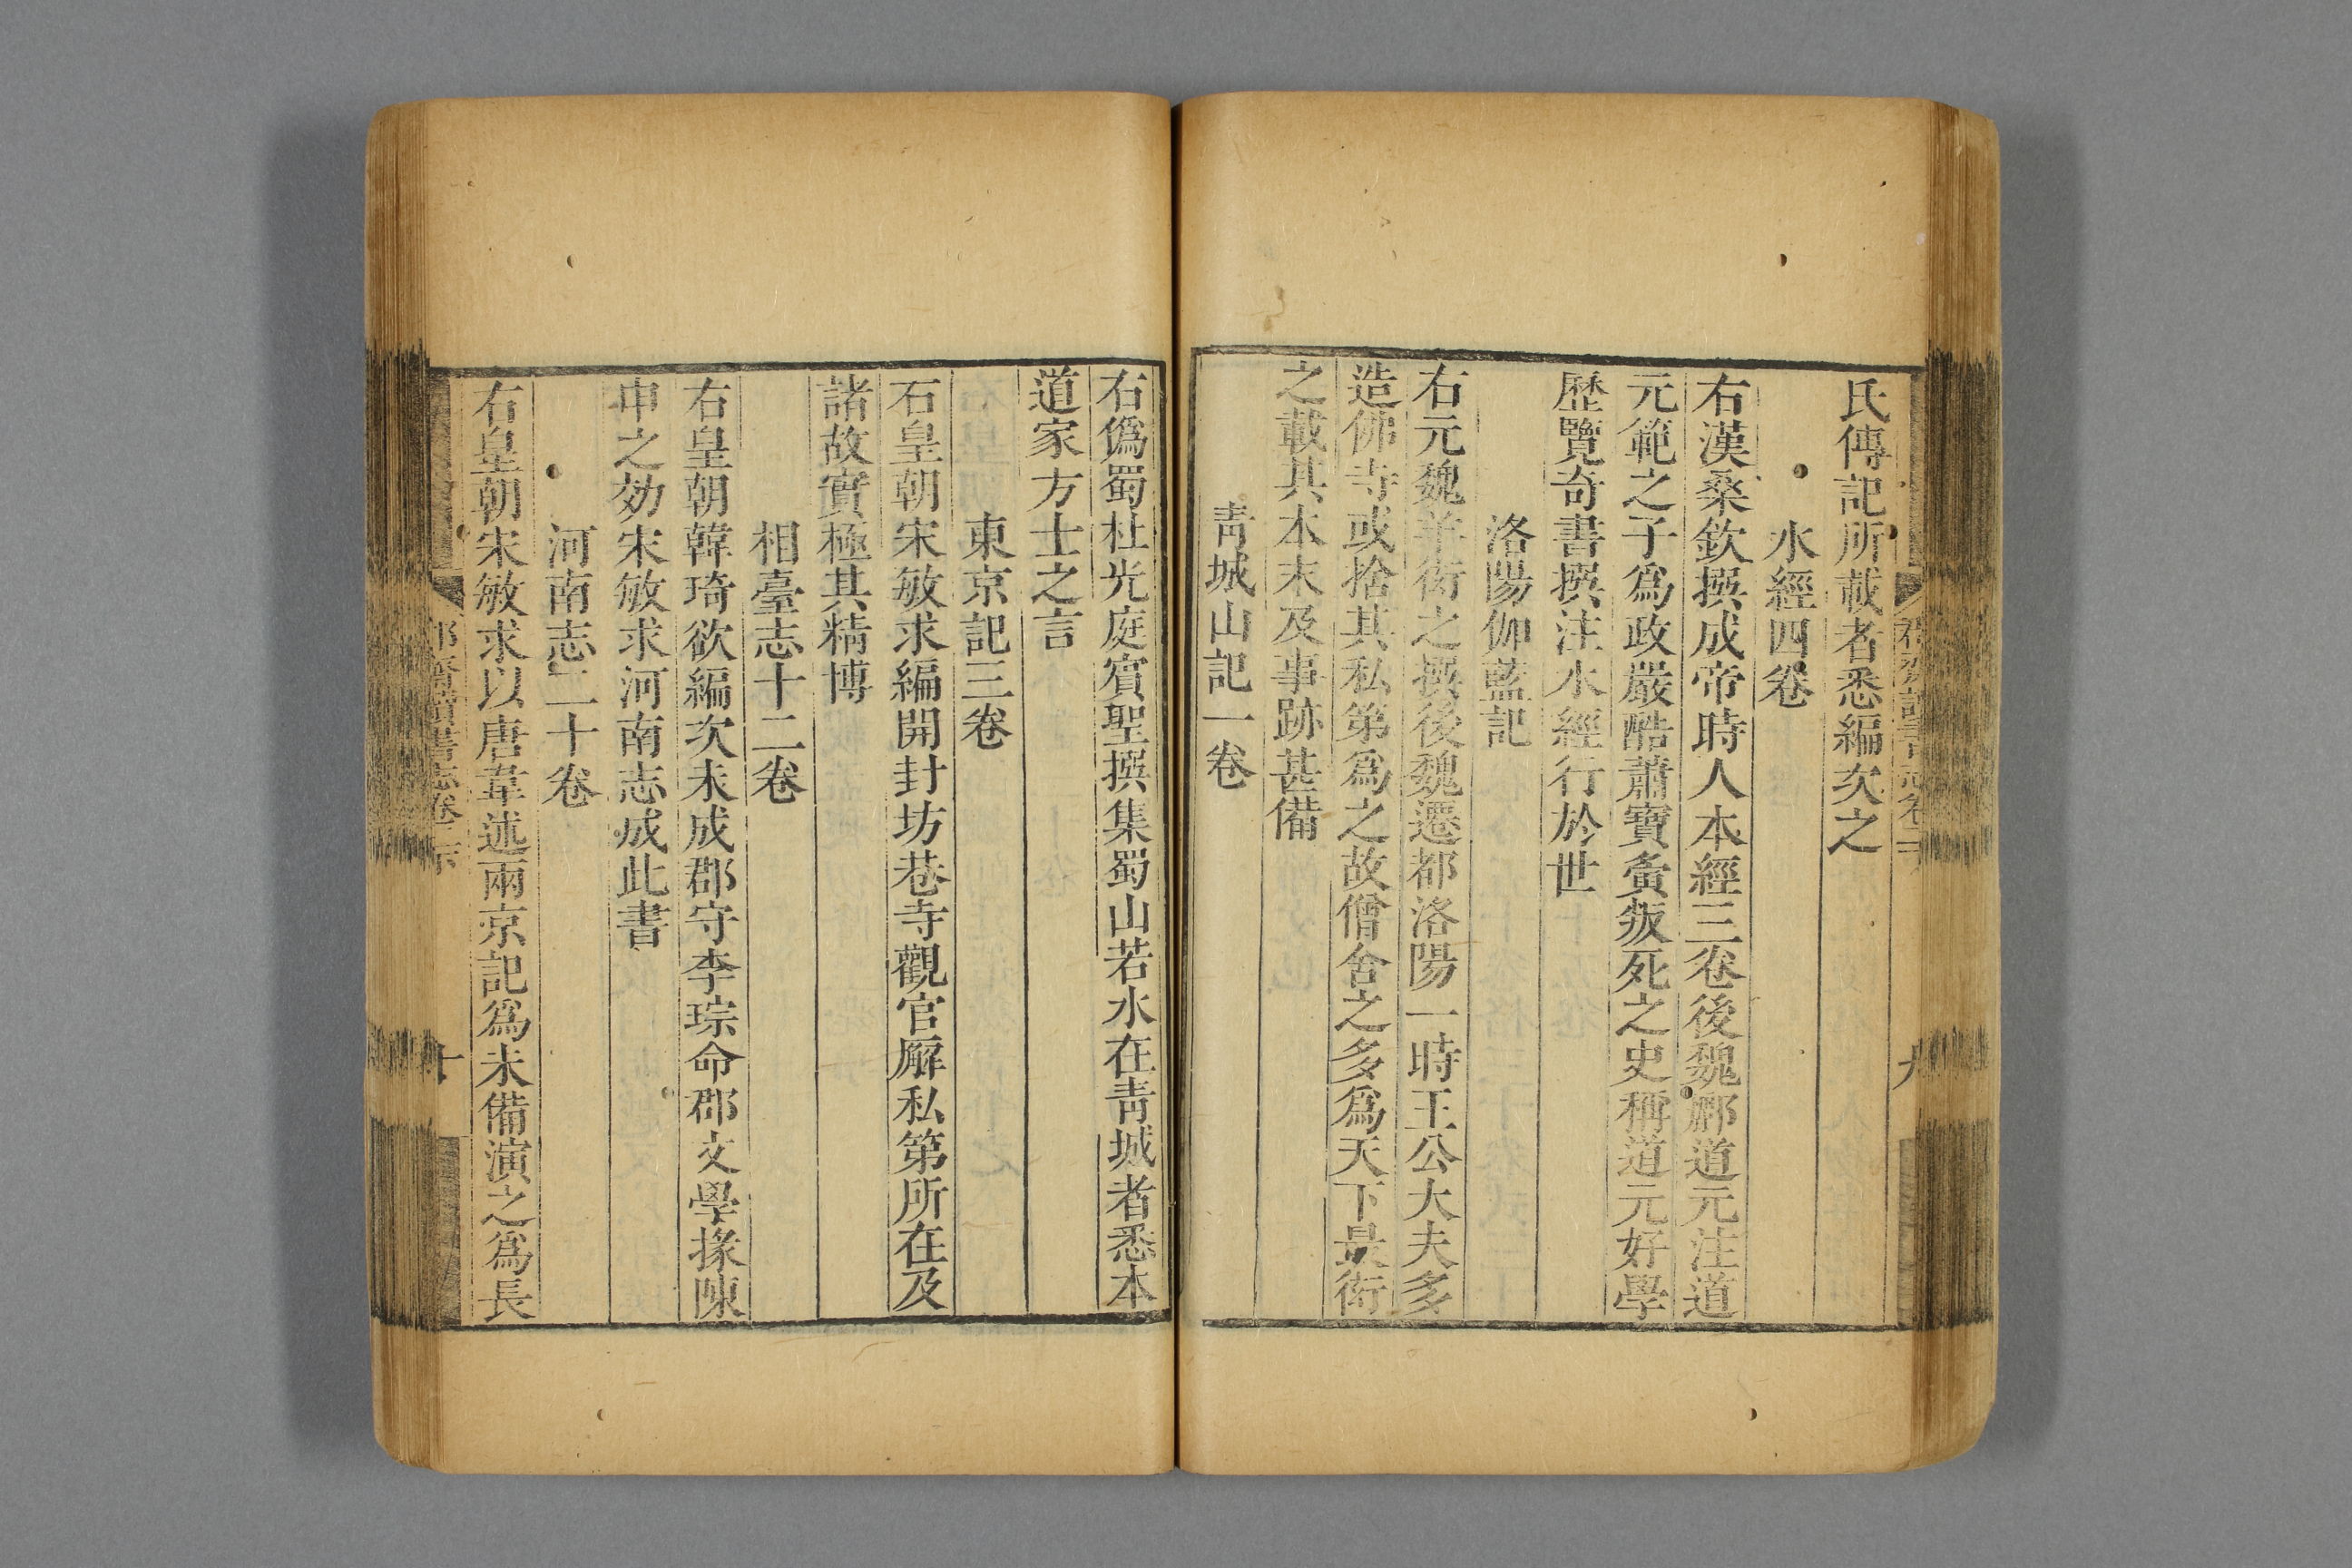 氏傳記所載者悉編次之
水經四卷
右漢桑欽撰成帝時人本經三卷後魏酈道元注道
元範之子爲政嚴酷蕭寶夤叛死之史稱道元好學
歷覽奇書撰注水經行於世
洛陽伽藍記
右元魏羊衒之撰後魏遷都洛陽一時王公大夫多
造佛寺或捨其私第爲之故僧舍之多爲天下最衒
之載其本末及事跡甚備
靑城山記一卷
右僞蜀杜光庭賓聖撰集蜀山若水在靑城者悉本
道家方士之言
東京記三卷
右皇朝宋敏求編開封坊巷寺觀官廨私第所在及
諸故實極其精博
相臺志十二卷
右皇朝韓琦欲編次未成郡守李琮命郡文學掾陳
申之効宋敏求河南志成此書
河南志二十卷
右皇朝宋敏求以唐韋述兩京記爲未備演之爲長